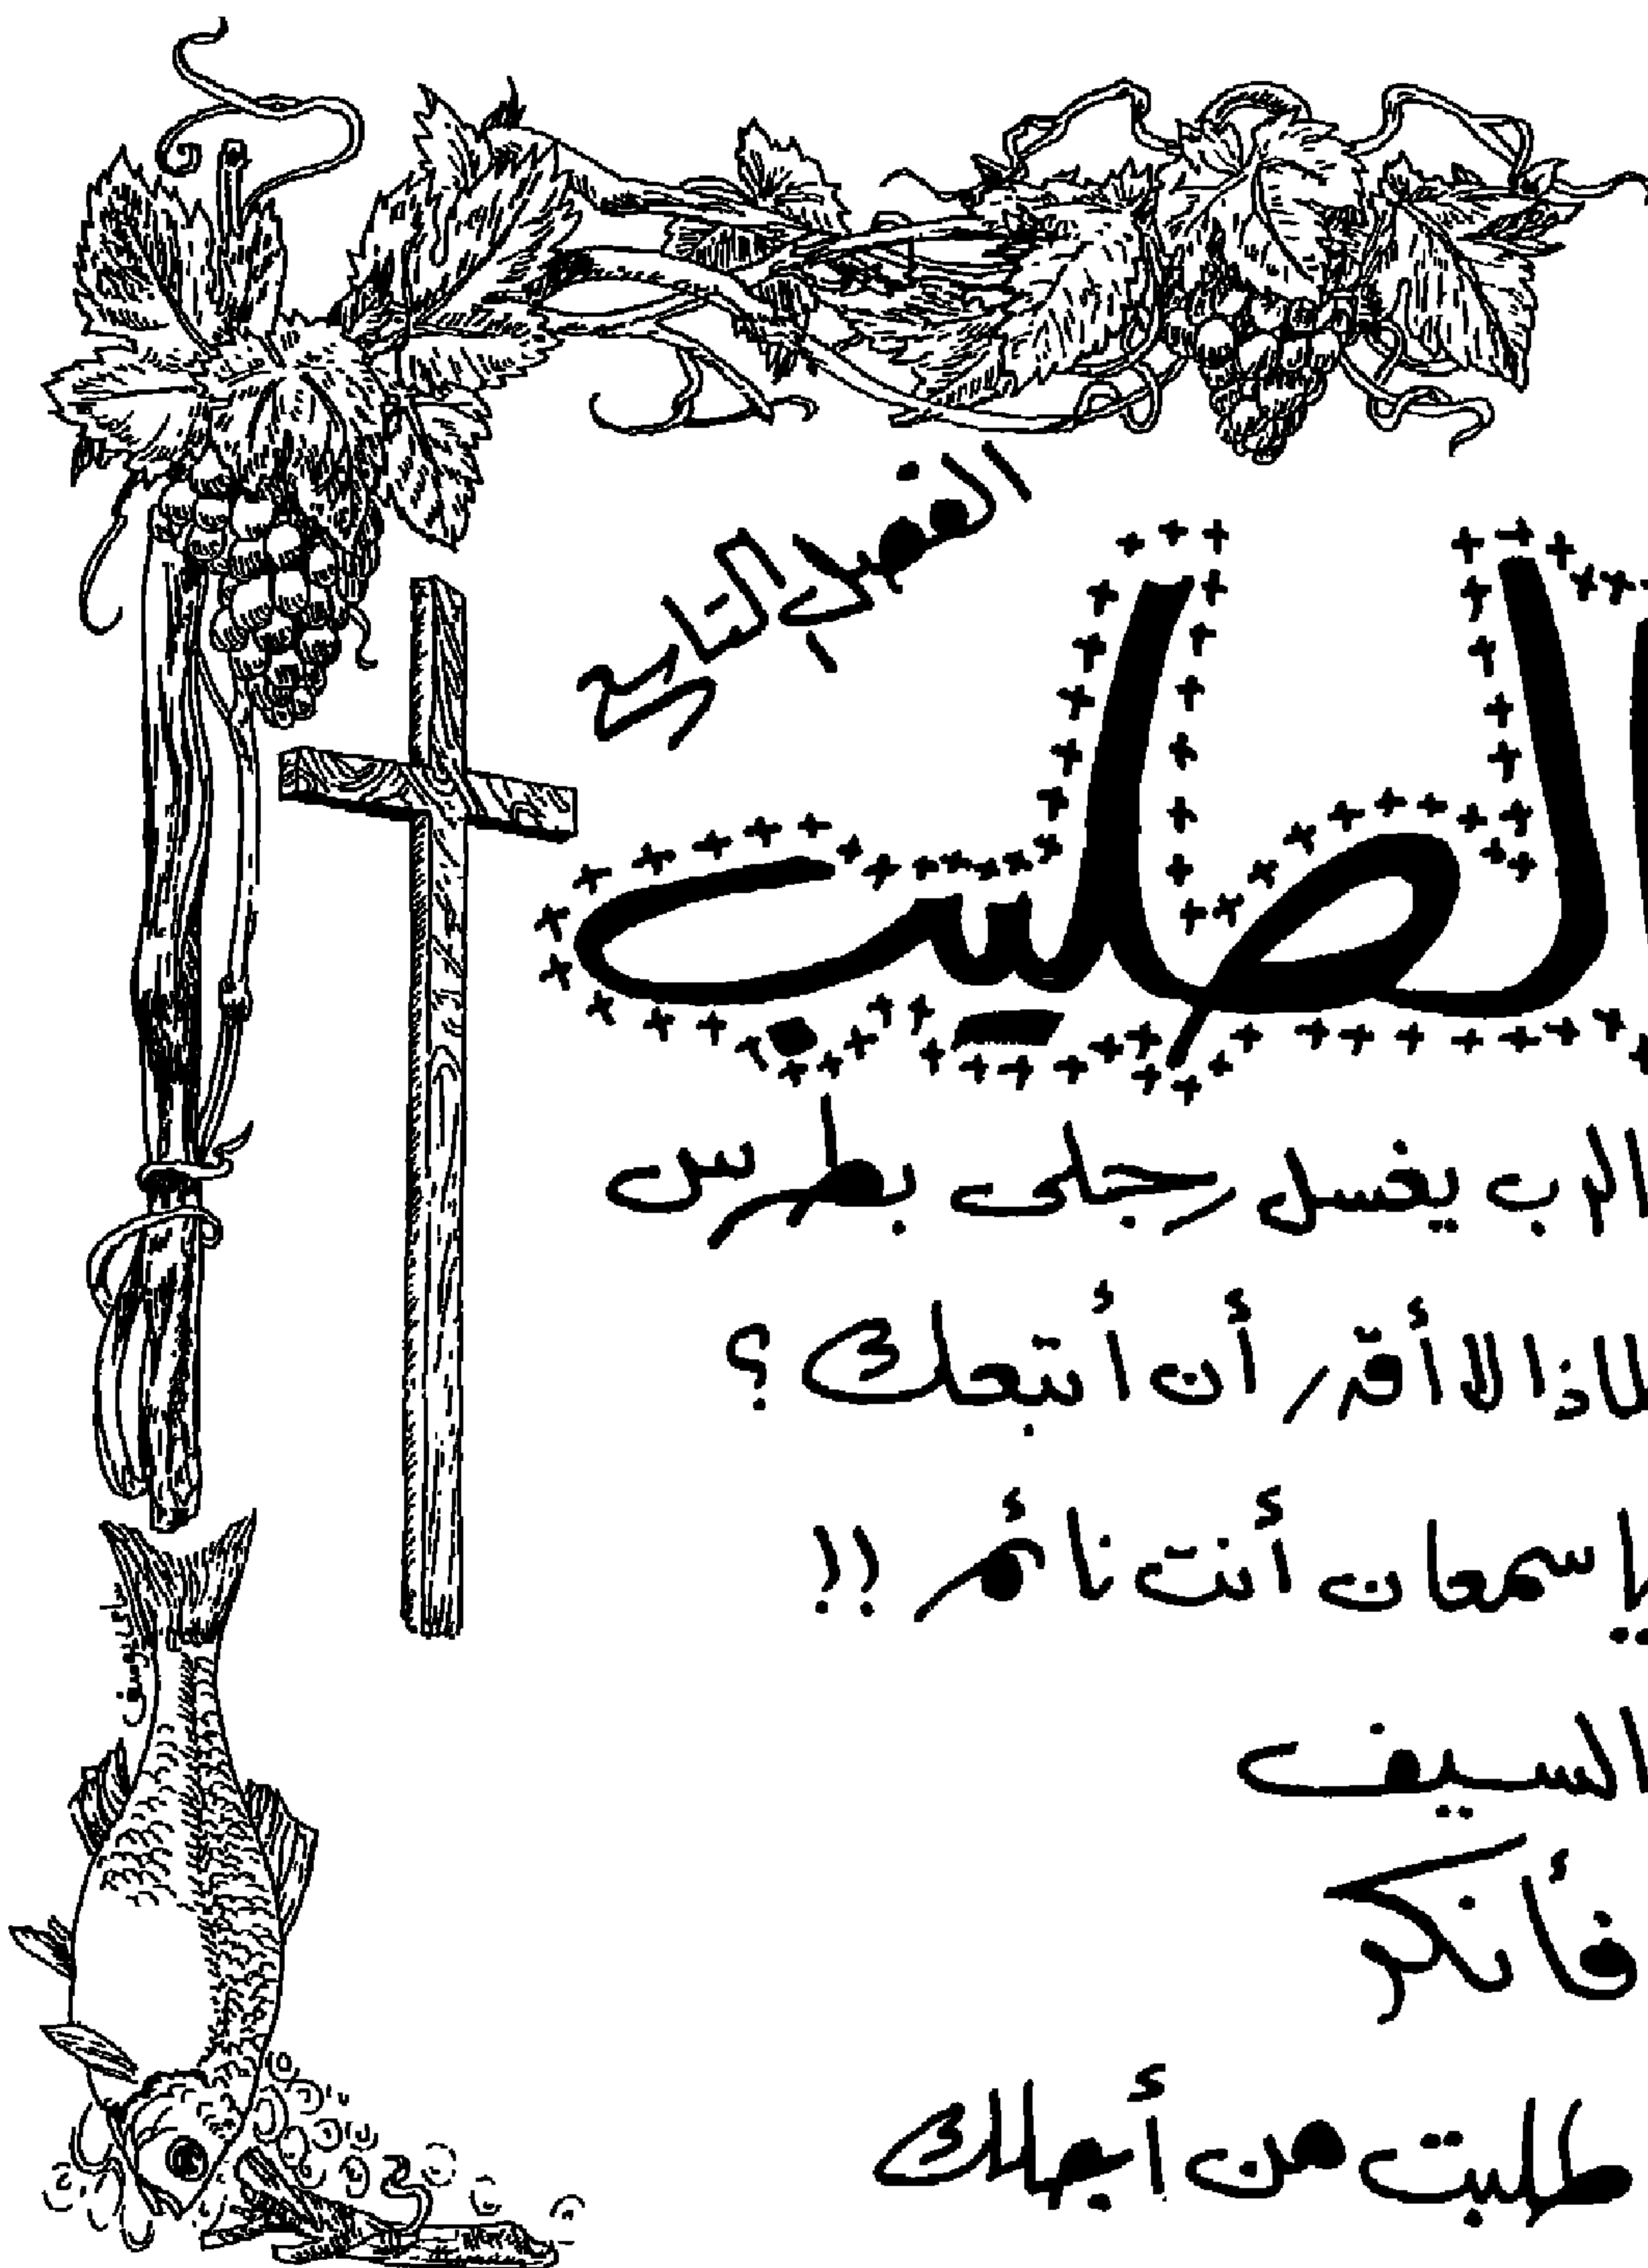 الفصل التاسع
الصليب
الرب يغسل رجلى بطرس
لماذا لا أقدر أن أتبعك ؟
يا سمعان أنت نائم !!
السيف
فأنكر
طلبت من أجلك
يوسف